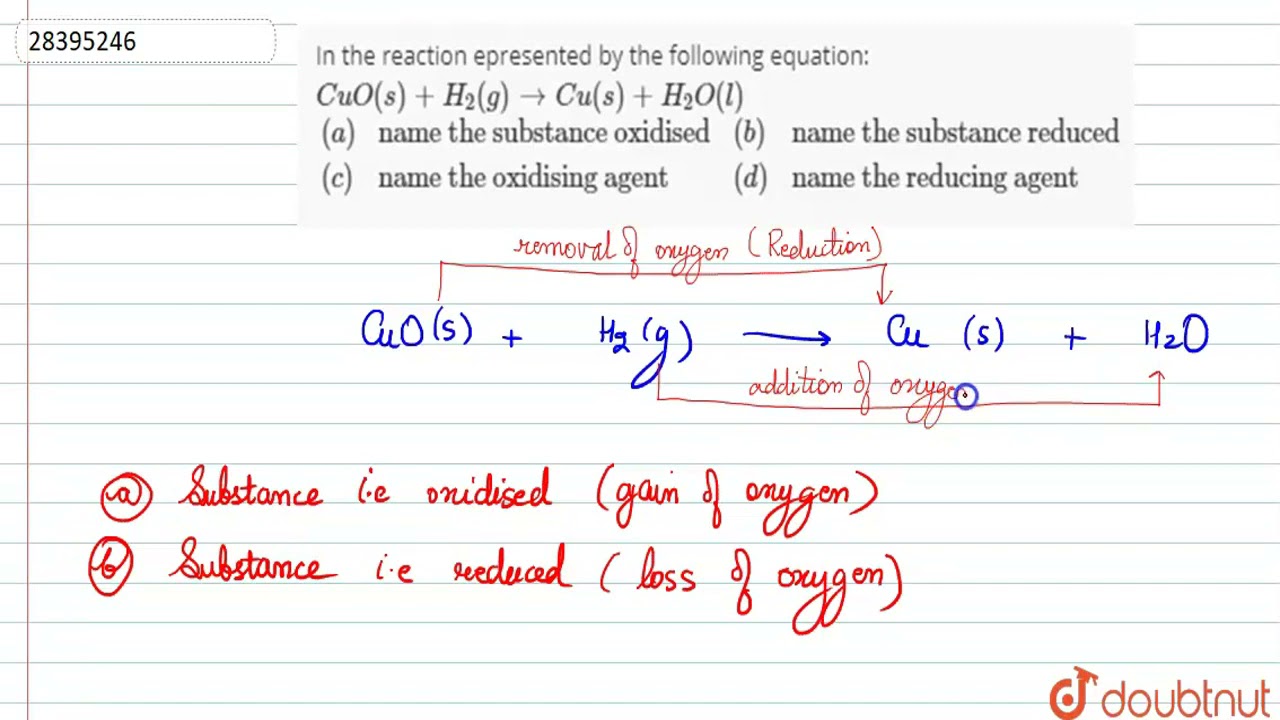 28395246
In the reaction epresented by the following equation:
CuO(s) + H₂(g) → Cu(s) + H₂O(l)
(a) name the substance oxidised (b) name the substance reduced
(c) name the oxidising agent (d) name the reducing agent
removal of oxygen (Reduction)
CuO(s) + H₂(g) ⟶ Cu (s) + H₂O
addition of oxygen
(a) Substance i.e oxidised (gain of oxygen)
(b) Substance i.e reduced (loss of oxygen)
doubtnut